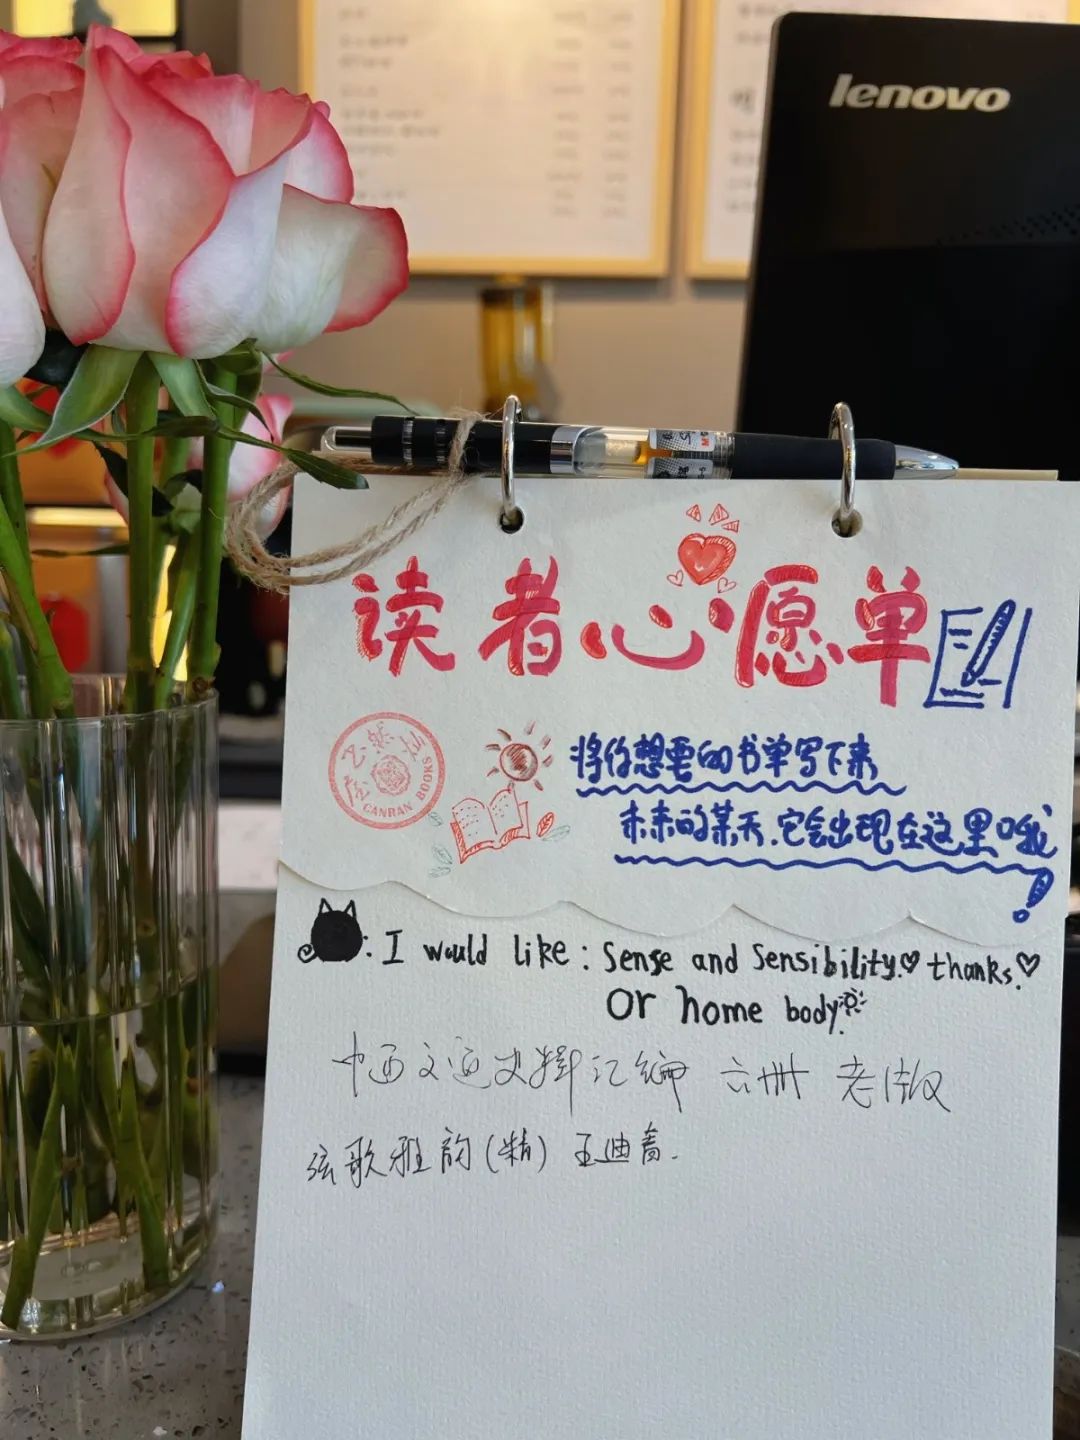 lenovo
读者心愿单
CANRAN BOOKS
将你想要的书单写下来
未来的某天.它会出现在这里哦!
: I would like : Sense and Sensibility. thanks.
or home body.
中西交通史料汇编 六册 老版
弦歌雅韵(精) 王迪着.